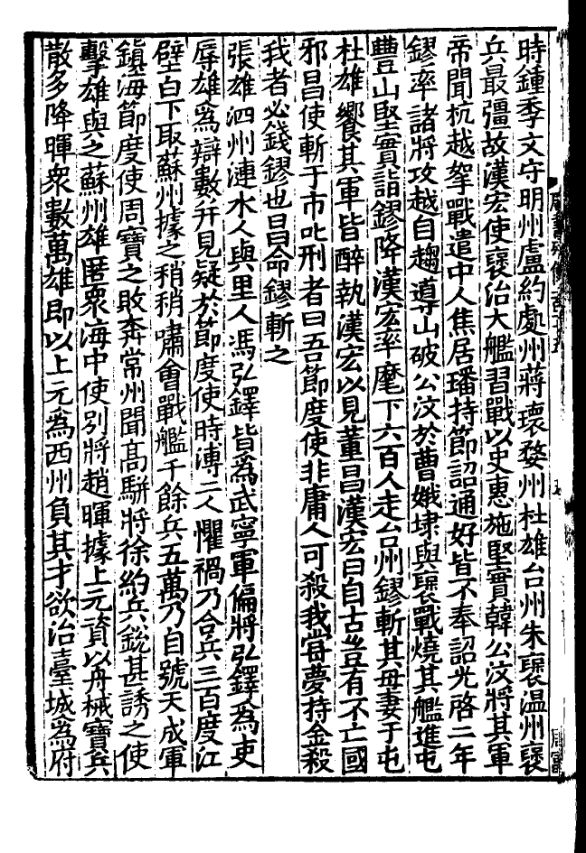 時鍾季文守明州盧約處州蔣瓌婺州杜雄台州朱襃温州襃
兵最彊故漢宏使襃治大艦習戰以史惠施堅實韓公汶將其軍
帝聞杭越挐戰遣中人焦居璠持節詔通好皆不奉詔光啓二年
鏐率諸將攻越自趨導山破公汶於曹娥埭與襃戰燒其艦進屯
豐山堅實詣鏐降漢宏率麾下六百人走台州鏐斬其母妻于屯
杜雄饗其軍皆醉執漢宏以見董昌漢宏曰自古豈有不亡國
邪昌使斬于市叱刑者曰吾節度使非庸人可殺我嘗夢持金殺
我者必錢鏐也昌命鏐斬之
張雄泗州漣水人與里人馮弘鐸皆爲武寧軍偏將弘鐸爲吏
辱雄爲辯數并見疑於節度使時溥二人懼禍乃合兵三百度江
壁白下取蘇州據之稍稍嘯會戰艦千餘兵五萬乃自號天成軍
鎮海節度使周寶之敗奔常州聞高駢將徐約兵銳甚誘之使
擊雄與之蘇州雄匿衆海中使別將趙暉據上元資以舟械寶兵
散多降暉衆數萬雄即以上元爲西州負其才欲治臺城爲府